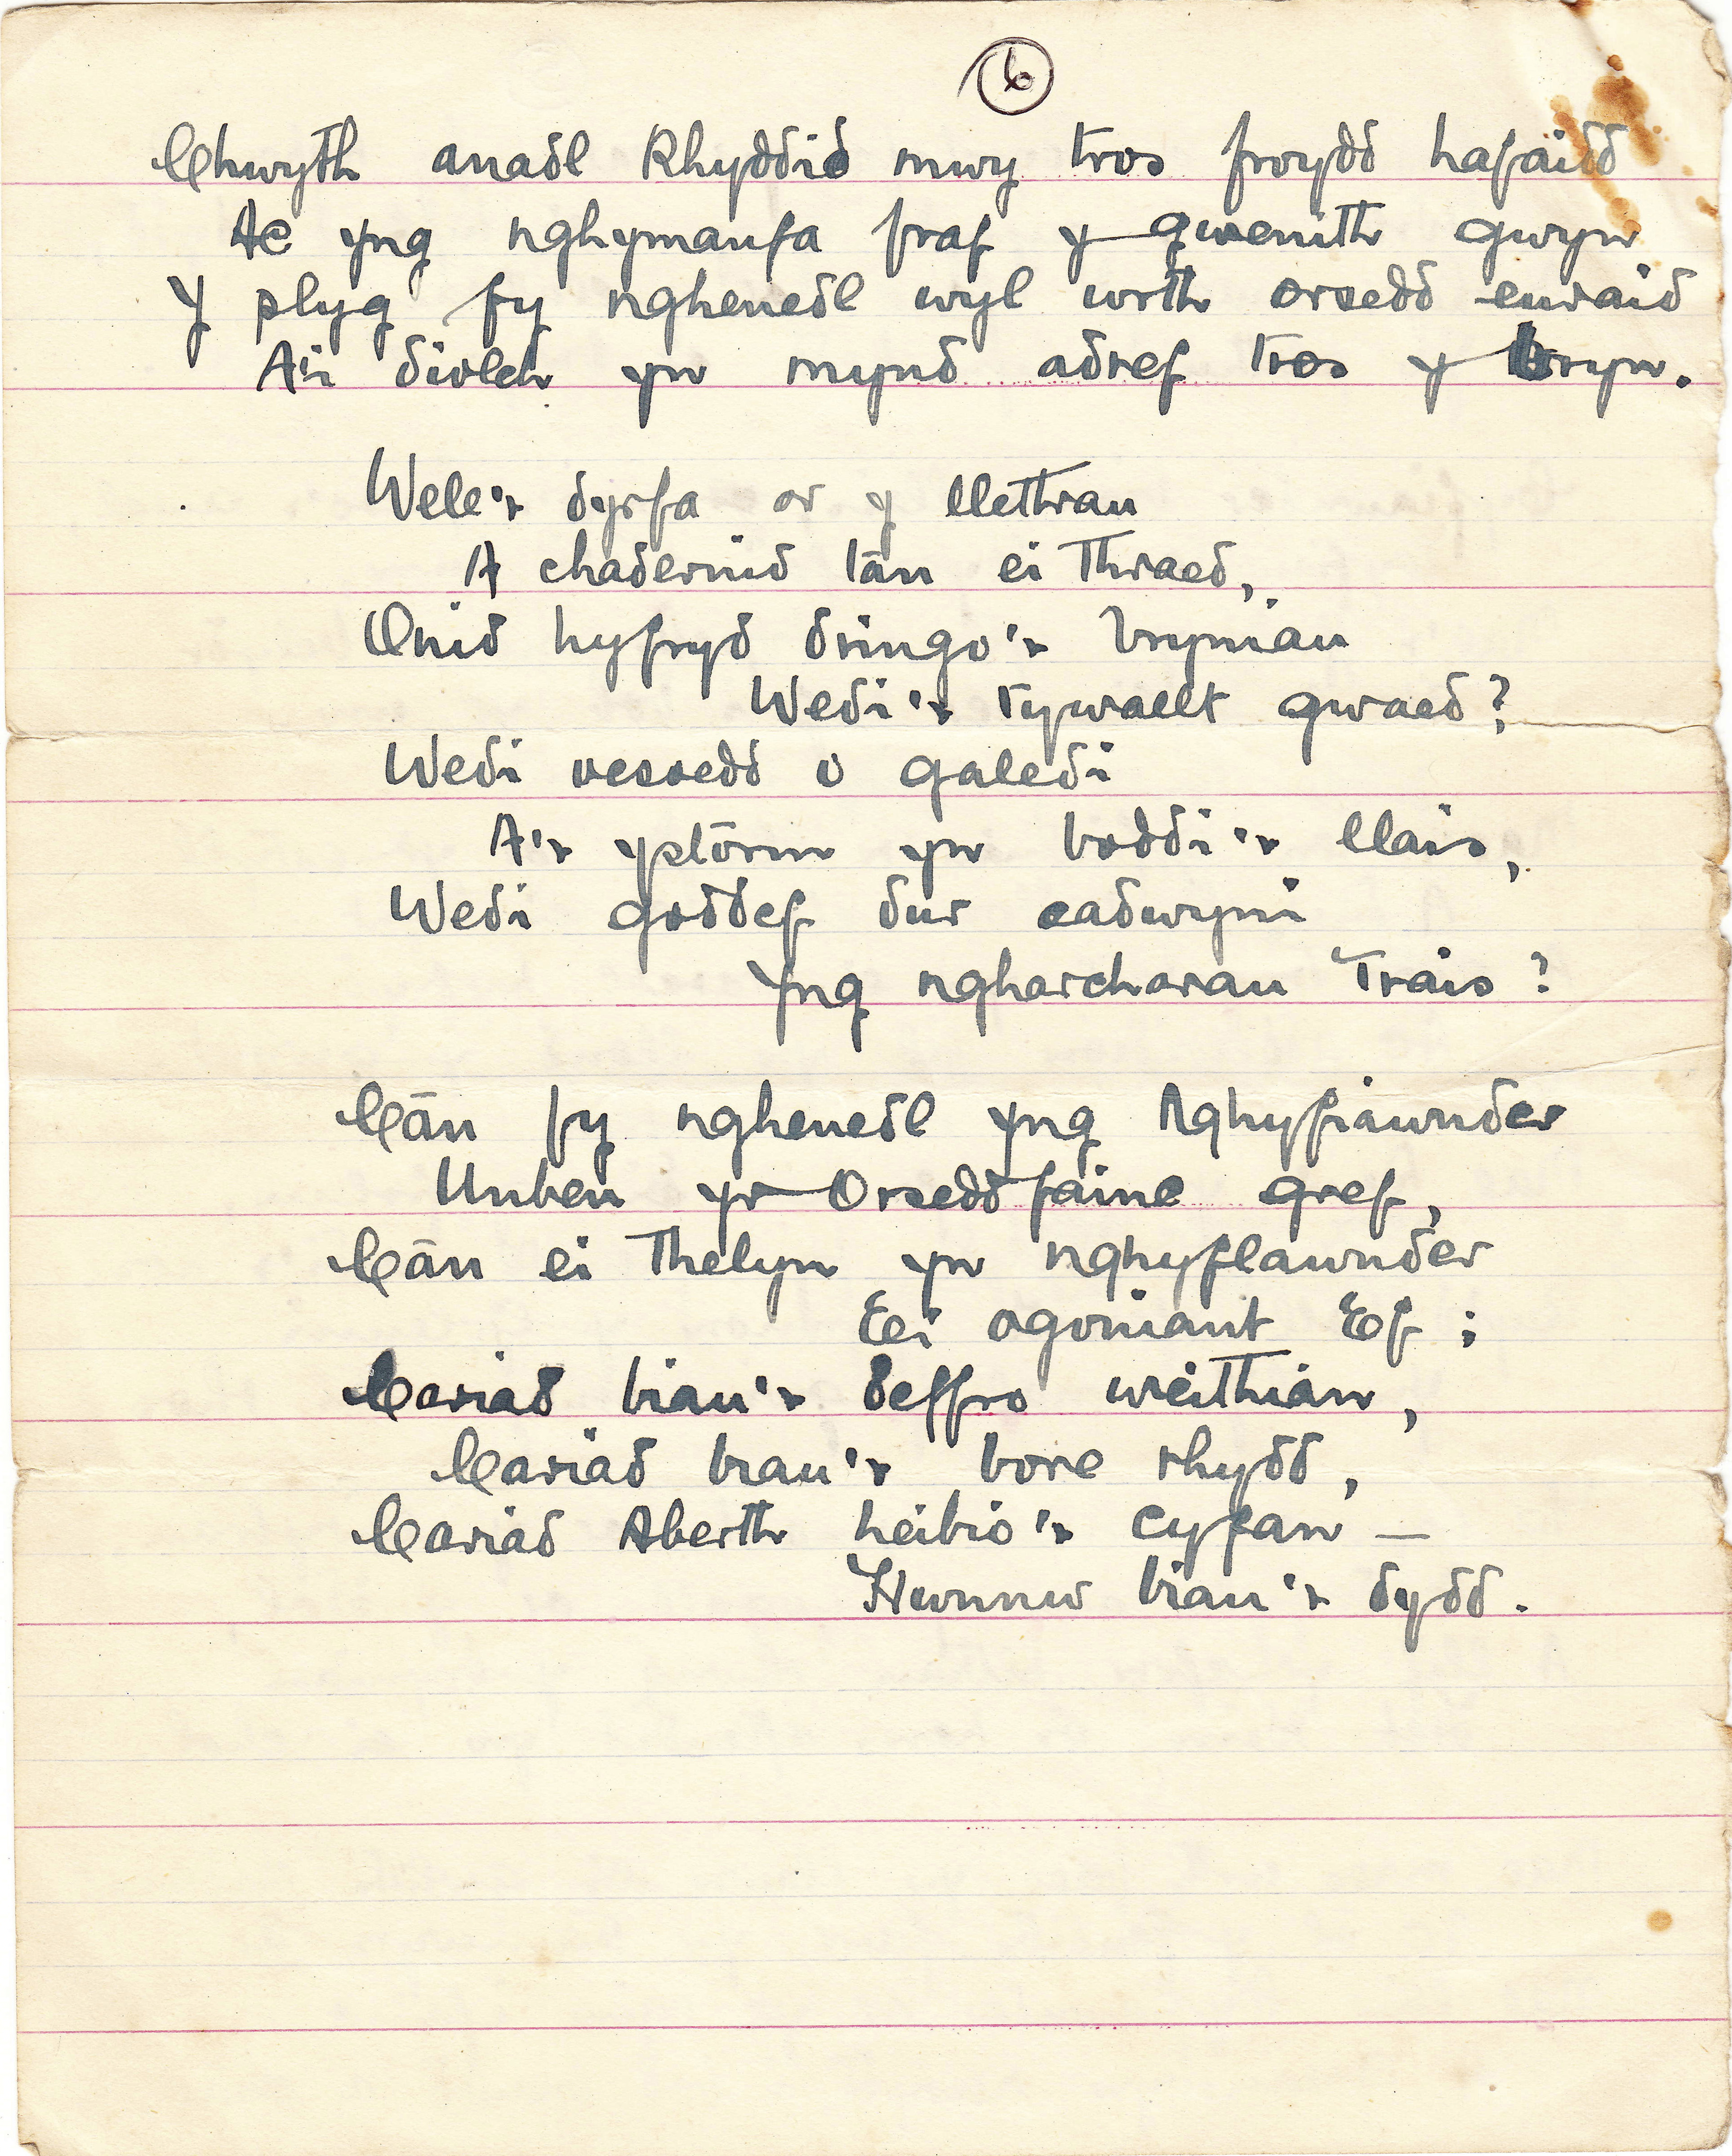 6
Chwyth anadl Rhyddid mwy tros froydd hafaidd
Ac yng nghymanfa fraf y gwenith gwyn
Y plyg fy nghenedl wyl wrth orsedd euraid
A'i diolch yn mynd adref tros y bryn.
Wele'r dyrfa ar y llethrau
A chadernid lān ei thraed,
Onid hyfryd dringo'r bryniau
Wedi'r tywallt gwaed?
Wedi oesoedd o galedi
A'r ystōrm yn boddi'r llais,
Wedi goddef dur cadwyni
Yng ngharcharau Trais?
Cān fy nghenedl yng Nghyfiawnder
Unben yr Orseddfainc gref,
Cān ei thelyn yn nghyflawnder
Ei ogoniant Ef;
Cariad biau'r deffro weithian,
Cariad biau'r bore rhydd,
Cariad Aberth heibio'r cyfan —
Hwnnw biau'r dydd.